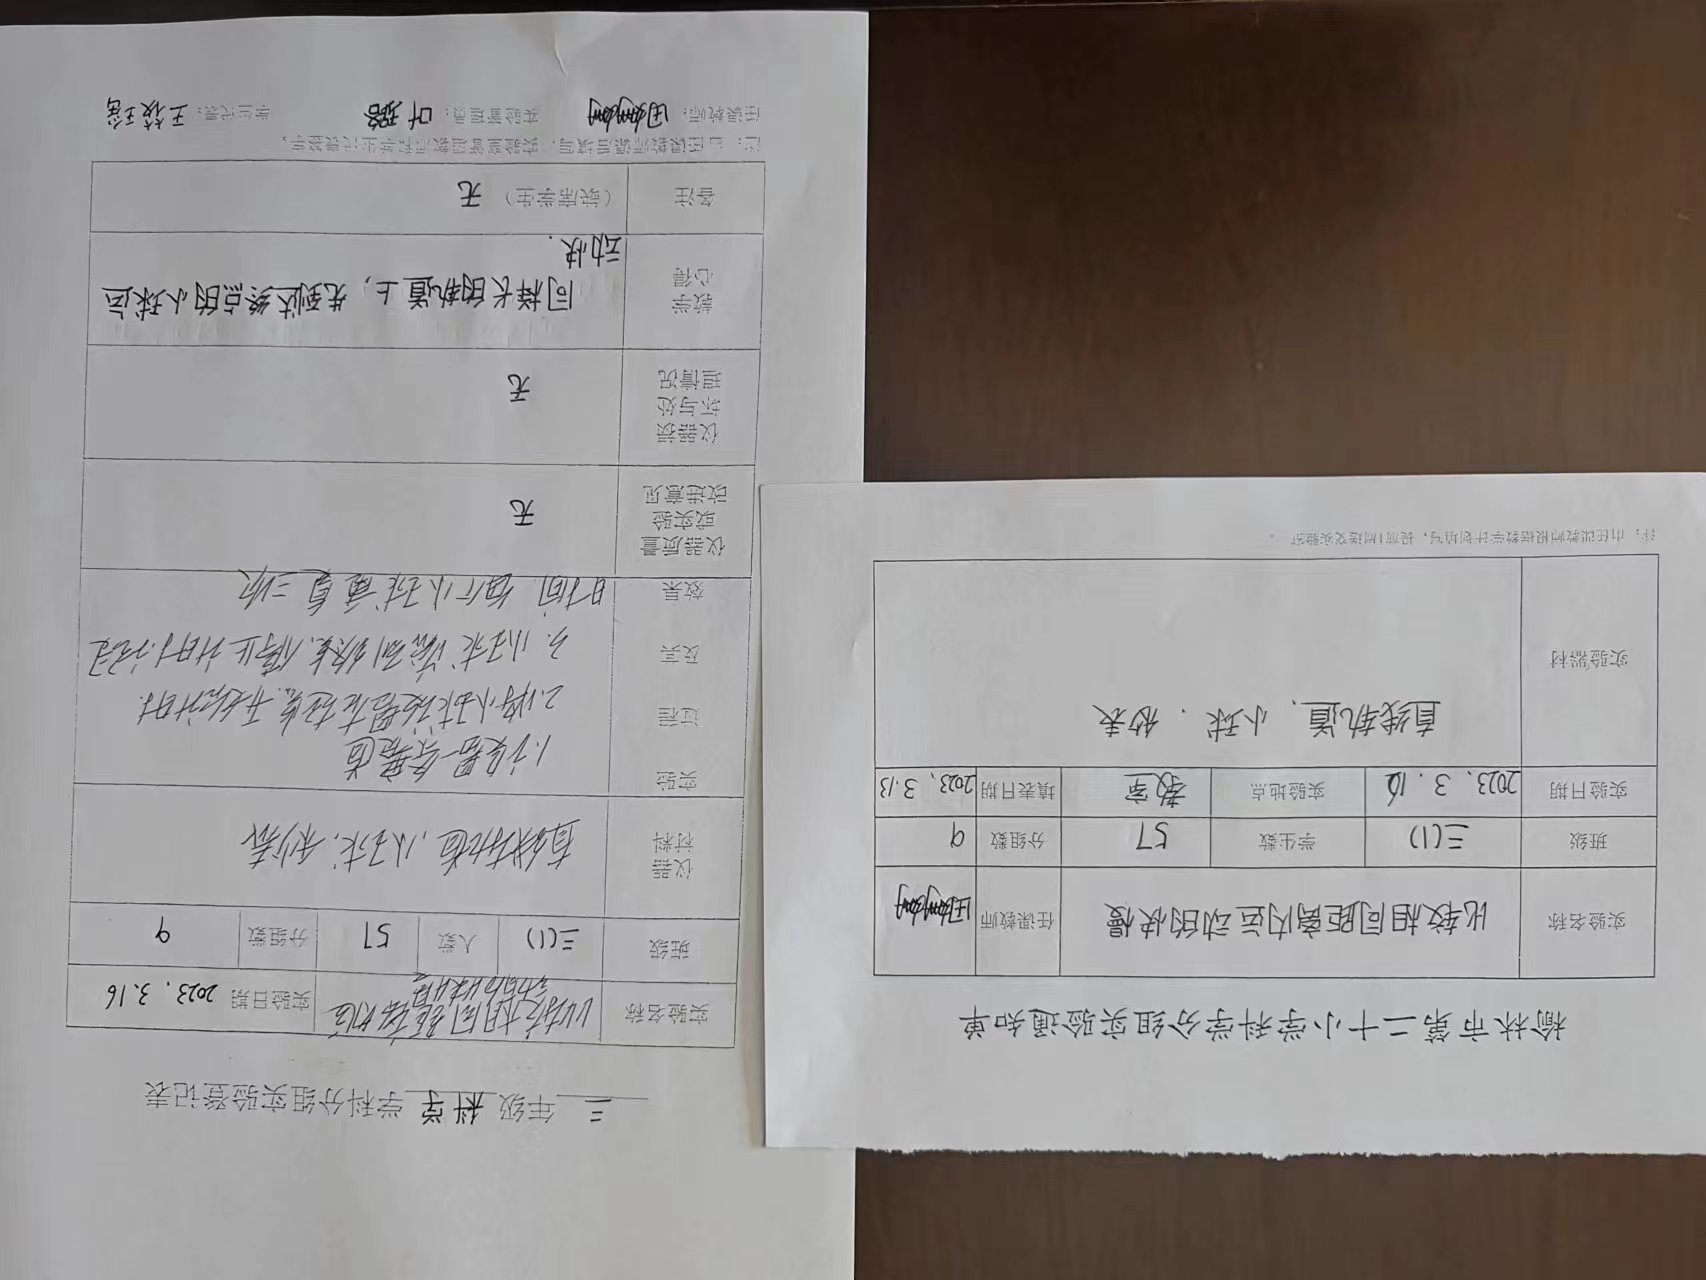 榆林市第二十小学科学分组实验通知单
实验名称 比较相同距离内运动的快慢 任课教师
班级 三(1) 学生数 57 分组数 9
实验日期 2023.3.16 实验地点 教室 填表日期 2023.3.13
实验器材 直线轨道、小球、秒表
注：由任课教师根据教学计划填写，提前1周送交实验室。
三 年级 科学 学科分组实验登记表
实验名称 比较相同距离内运动的快慢 实验日期 2023.3.16
班级 三(1) 人数 57 分组数 9
仪器材料 直线轨道，小球，秒表
实验过程及实效果
1.设置一条赛道
2.将小球放置在起点，开始计时.
3.小球滚到终点，停止计时.记录
时间，每个小球重复三次
仪器质量或实验改进意见 无
仪器损坏与处理情况 无
教学心得 同样长的轨道上，先到达终点的小球运
动快.
备注 （缺席学生） 无
任课教师： 实验管理员：叶璐 学生代表：王筱瑶